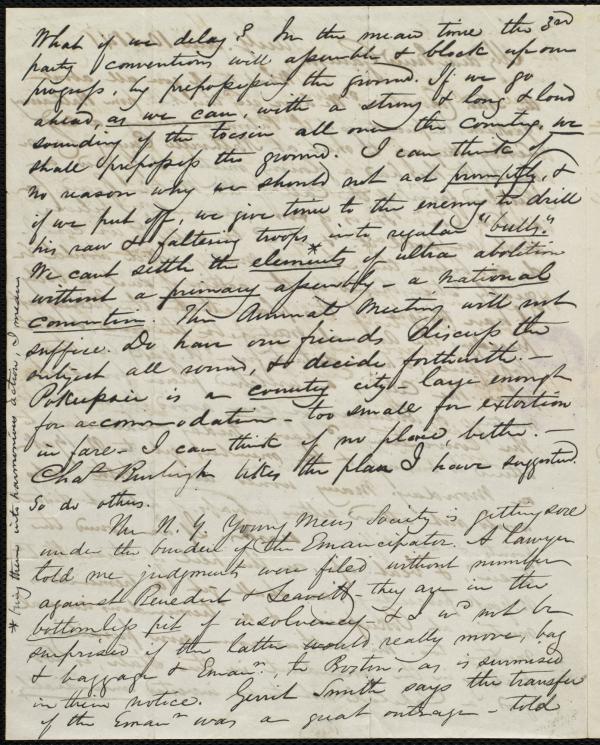 What if we delay? In the mean time the 3rd
party conventions will assemble & block up our
progress, by prepossessing the ground. If we go
ahead, as we can, with a strong & long & loud
sounding of the tocsin all over the country, we
shall prepossess the ground. I can think of
no reason why we should not act promptly, &
if we put off, we give time to the enemy to drill
his raw & faltering troops into regular "bulls."
We cant settle the elements* of ultra abolition
without a primary assembly – a national
convention. The Annual Meeting will not
suffice. Do have our friends discuss the
subject all round, & decide forthwith. –
Pokeepsie is a country city – large enough
for accommodation – too small for extortion
in fare – I can think of no place, better. –
Chas Burleigh likes the plan I have suggested.
So do others.
The N. Y. Young Mens Society is getting sore
under the burden of the Emancipator. A lawyer
told me judgments were filed without number
against Benedict & Leavitt – they are in the
bottomless pit of insolvency – & I wd not be
surprised if the latter would really move, bag
& baggage & Emanr, to Boston, as is surmised
in their notice. Gerrit Smith says the transfer
of the Emanr was a great outrage – told
* bring them into harmonious action, I mean